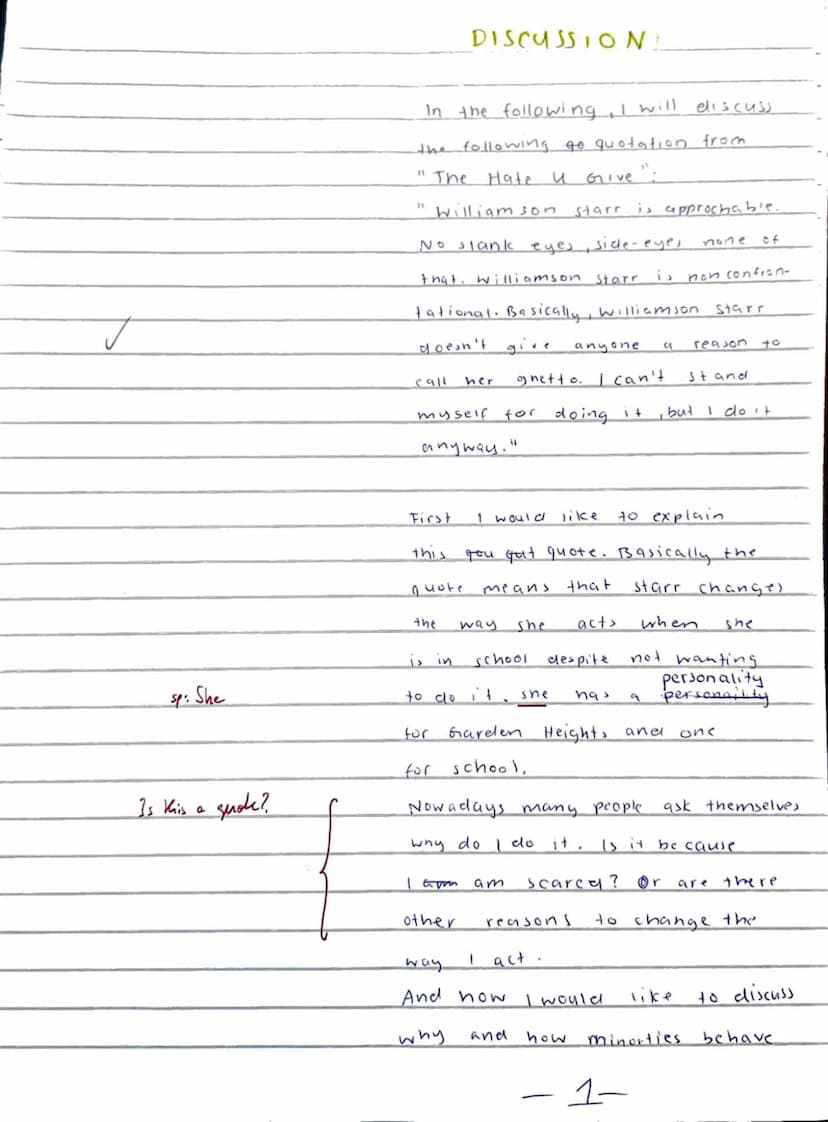 DISCUSSION
In the following, I will discuss
the following qo quotation from
"The Hate U Give":
"Williamson starr is approchable.
No stank eyes, side-eyes none of
that. Williamson starr is nonconfron-
tational. Basically, Williamson starr
doesn't give anyone a reason to
call her ghetto. I can't stand
myself for doing it, but I do it
anyway."
First I would like to explain
this qou qut quote. Basically the
quote means that starr changes
the way she acts when she
is in school despite not wanting
personality
sp: She
to do it. she has a personility
for Garden Heights and one
for school.
Is this a quote?
Nowadays many people ask themselves
why do I do it. Is it because
I am scared? Or are there
other reasons to change the
way I act.
And now I would like to discuss
why and how minorties behave
-1-